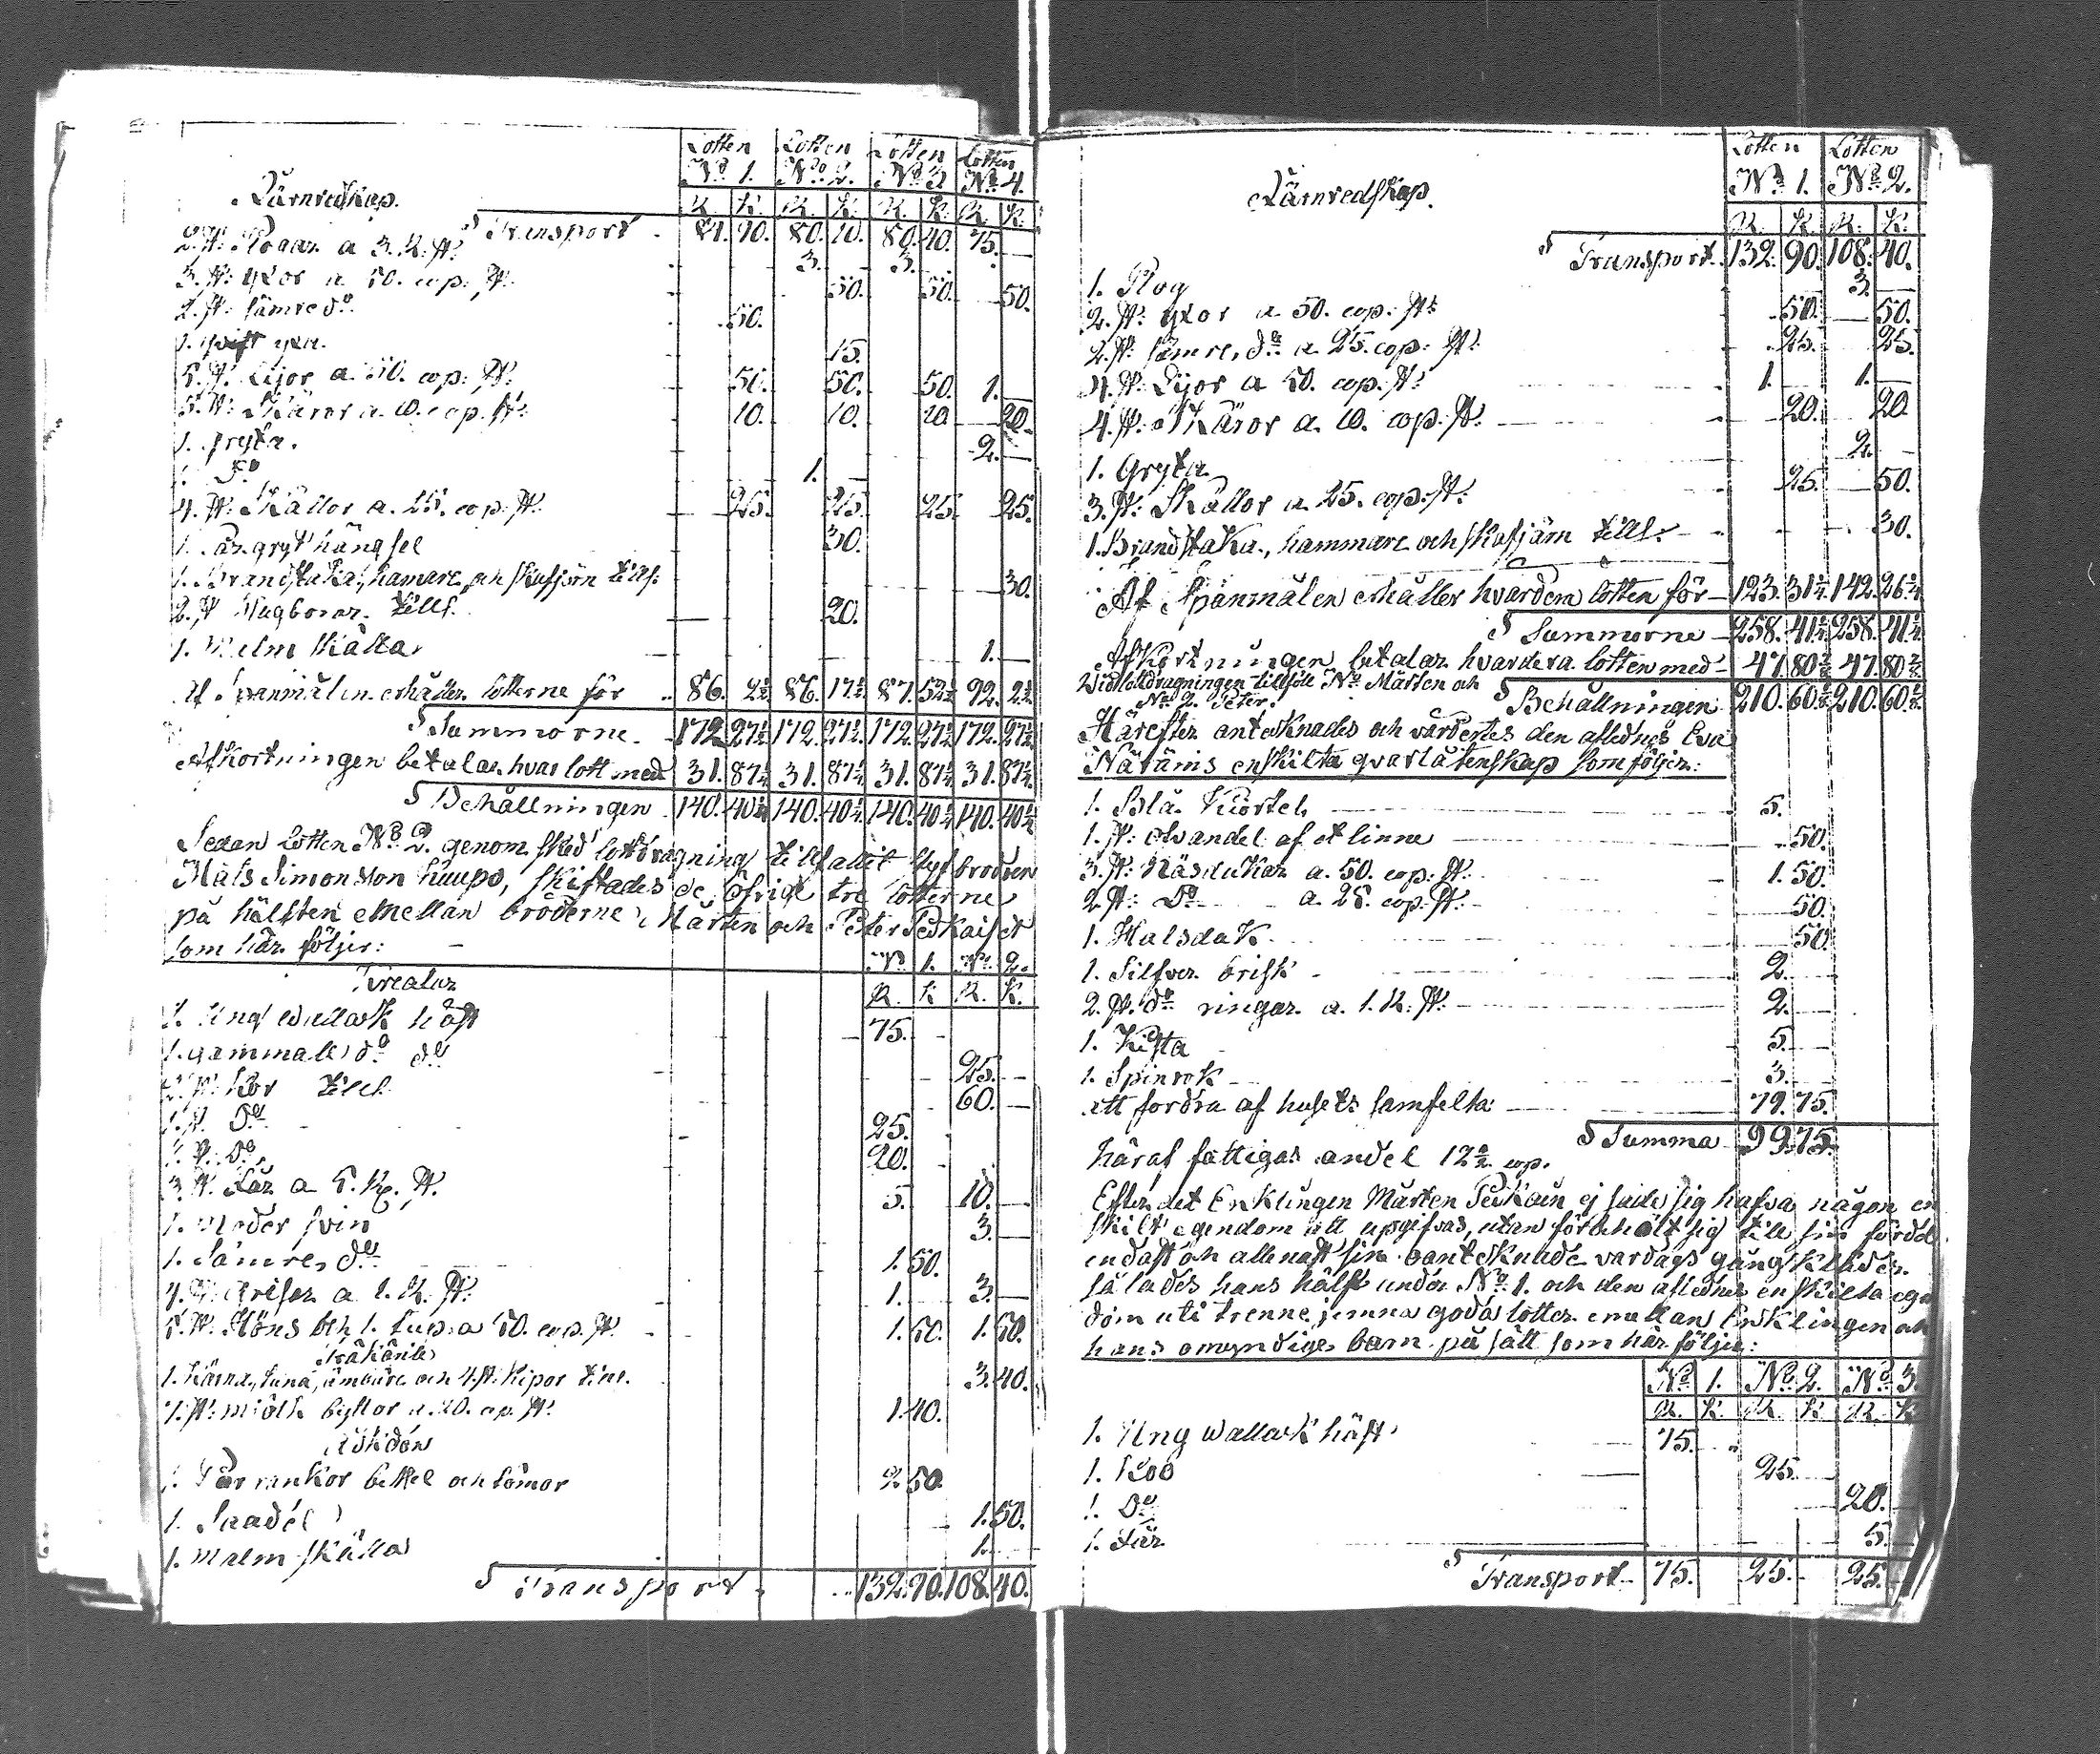 Lotten Lotten Lotten Lotten
No 1. No 2. No 3 No 4.
Järnredskap.
R. K. R. K. R. K. R. K.
S Transport 81. 90. 80. 10. 80. 40. 75. —
2. st: Plogar a 3. R. st: 3. 3.
3. st: yxor a 50. cop: st: 50. 50. 50.
2. st: sämre do 50.
1. yxa. 15.
5. st: Lijor a 50. cop: st: 50. 50. 50. 1. —
5. st: Skäror a 10. cop. st: 10. 10. 10 20.
1. gryta. 2. —
1. Do 1. —
4. st: Skållor a. 25. cop: st: 25. 25. 25. 25.
1. Par grythängsel 30.
1. Brandstaka, hamare och skafjärn tills: 30.
2. st Nagborar tills. 20.
1. Malm skålla 1. —
Af Spanmålen erhåller lotterne för 86. 2½ 86. 17½ 87. 52½ 92. 2½
S Summorne 172. 27½ 172. 27½ 172. 27½ 172. 27½
Afkortningen betalar hvar lott med 31. 87¼ 31. 87¼ 31. 87¼ 31. 87¼
S Behållningen 140. 40¼ 140. 40¼ 140. 40¼ 140. 40¼
Sedan lotten No 2. genom sked lottdragning tillfallit styfbrodren
Mats Simonsson huupo, skiftades de öfrige tre lotterne
på hälften emellan bröderne Mårten och Peter Peskaiset
som här följer: —
No 1. No 2.
Kreatur
R. K R. K.
1. Ung wallack häst 75. —
1. gammal do do 25. —
2. st: kor tills. 60. —
1. st. Do 25.
1. st. Do. 20.
3. st. Får a 5. R. st. 5. 10. —
1. Moder svin 3. —
1. Sämre do 1. 50.
4. st Grisar a 1. R. st: 1. 3. —
5. st. Höns och 1. tup a 50. cop. st. 1. 50. 1. 50.
Träkäril
1. Kärna, tina, ämbare och 4. st. kipor tills. 3. 40.
7. st: miölk byttor a 20. cop. st: 1. 40.
Åkdon
1. Par rankor bettsel och tömar 2. 50.
1. Saadel 1. 50.
1. Malm skålla 1.
S Transport 132. 90. 108. 40.
Lotten Lotten
No 1. No 2.
Järnredskap.
R. K. R. K.
S Transport 132. 90. 108. 40.
1. Plog 3. —
2. st: yxor a 50. cop: st: 50. 50.
2. st: sämre do a 25. cop: st: 25. 25.
4. st: Lijor a 50. cop. st: 1. 1. —
4. st: Skäror a. 10. cop. st. 20. 20
1. Gryta 2. —
3. st: Skållor a. 25. cop: st: 25. 50.
1. Brandstaka, hammare och skafjärn tills: 30.
Af Spänmålen erhåller hvardera lotten för 123. 31¼ 142. 26¼
S Summorne 258. 41¼ 258. 41¼
Afkortningen betalar hvardera lotten med 47. 80 47. 80
Wid lottdragningen tillföll No Mårten och
No 2. Peter.
S Behållningen 210. 60 210. 60
Härefter antecknades och värderts den aflednes Eva
Näräinis enskilta qvarlåtenskap som följer:
1. Blå Kiortel 5.
1. st: Ofvandel af et linne 50.
3. st: Näsdukar a. 50. cop: st: 1. 50.
2. st: Do a. 25. cop: st: 50.
1. Halsduk 50
1. Silfver brisk 2. —
2. st. do ringar a. 1. R: st. 2. —
1. Kista 5. —
1. Spinrok 3. —
att fordra af husets samfelta 79. 75.
S Summa 99. 75.
häraf fattigas andel 12½ cop.
Efter det Enklingen Mårten Peskain ej sade sig hafva någon en
skilt egendom att upgifvas, utan förbehölt sig till sin fördel
endast och allenast sin oantecknade vardags gångkläder.
så lades hans hälft under No 1. och den aflednes enskilta egen
dom uti trenne jemna goda lotter emellan Enklingen och
hans omyndige barn på sätt som här följer:
No 1. No 2. No 3.
R. K. R. K R. K
1. Ung wallack häst 75. —
1. Koo 25. —
1. Do 20. —
1. Får 5.
S Transport 75. 25. — 25. —